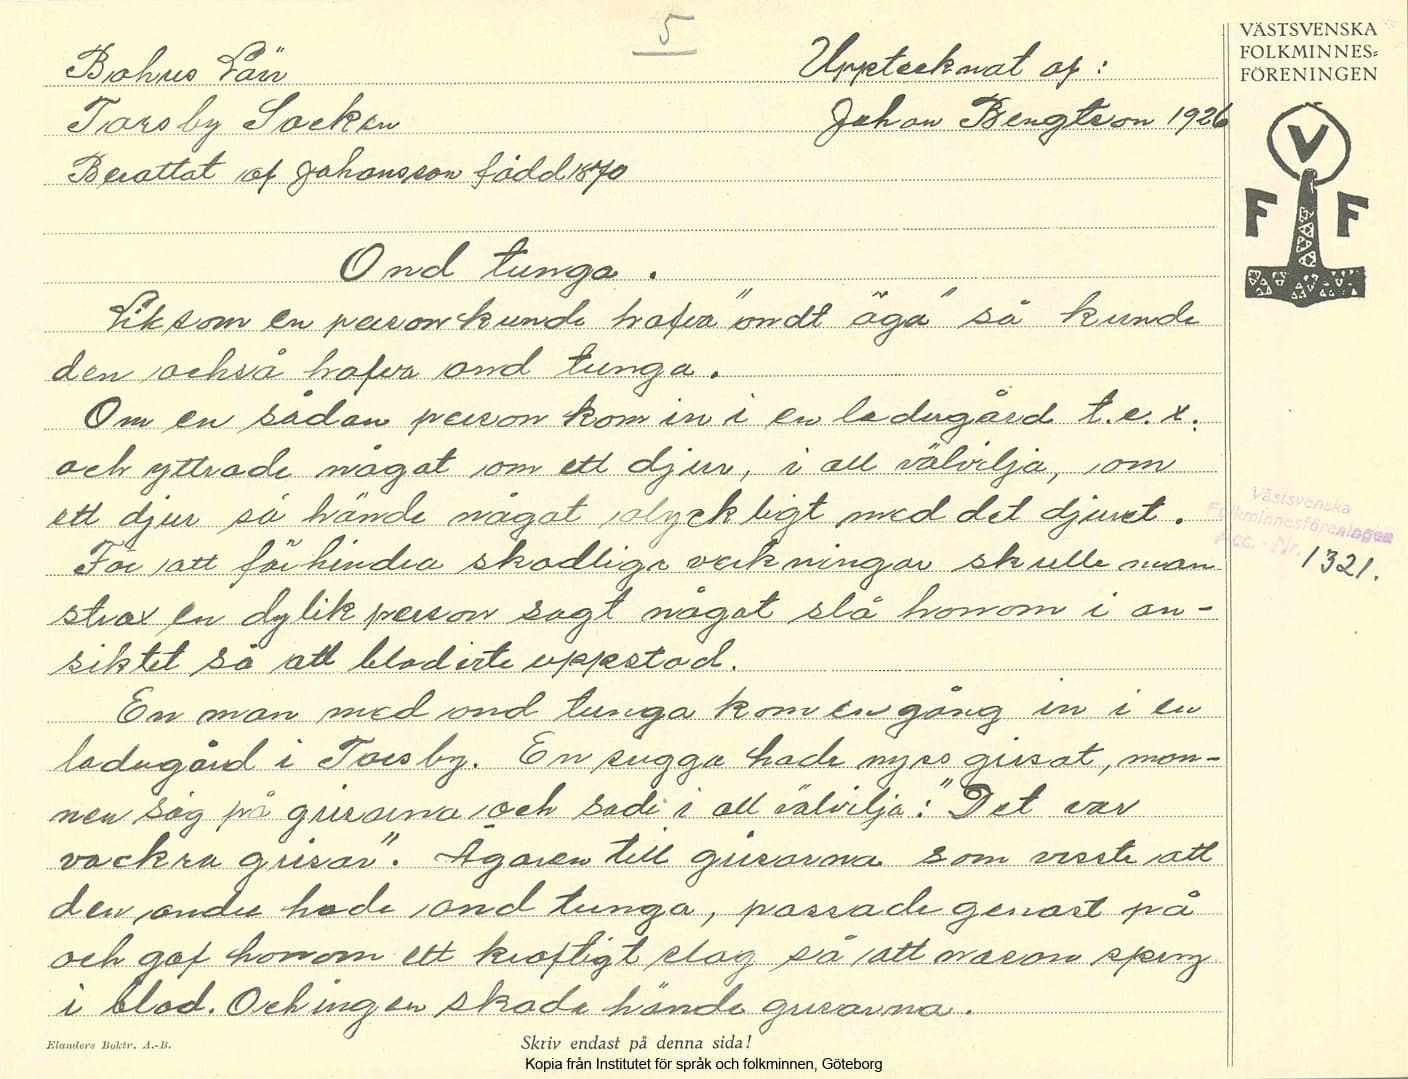 5
Bohus Län
Upptecknat af:
Torsby Socken
Johan Bengtson 1926
Berättat af Johansson född 1870
Ond tunga.
Liksom en person kunde hafva "ondt öga" så kunde
den också hafva ond tunga.
Om en sådan person kom in i en ladugård t.e.x.
och yttrade något om ett djur, i all välvilja, om
ett djur så hände något olyckligt med det djuret.
För att förhindra skadliga verkningar skulle man
strax en dylik person sagt något slå honom i an-
siktet så att blodvite uppstod.
En man med ond tunga kom en gång in i en
ladugård i Torsby. En sugga hade nyss grisat, man-
nen såg på grisarna och sade i all välvilja: "Det var
vackra grisar". Ägaren till grisarna som visste att
den andre hade ond tunga, passade genast på
och gaf honom ett kraftigt slag så att näsan sprang
i blod. Och ingen skada hände grisarna.
VÄSTSVENSKA
FOLKMINNES=
FÖRENINGEN
V
F F
Västsvenska
Folkminnesföreningen
Acc. - Nr. 1321.
Elanders Boktr. A.-B.
Skriv endast på denna sida!
Kopia från Institutet för språk och folkminnen, Göteborg